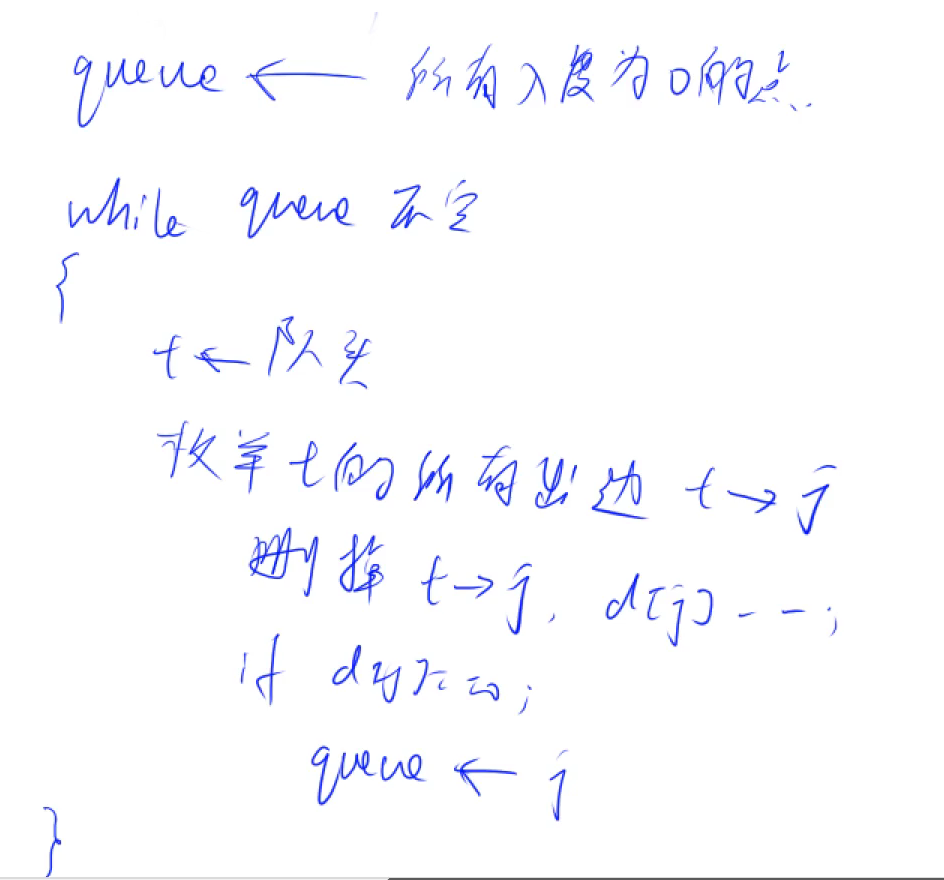 queue ← 所有入度为0的点
while queue 不空
{
t ← 队头
枚举 t的所有出边 t→j
删掉 t→j, d[j]--;
if d[j]==0;
queue ← j
}